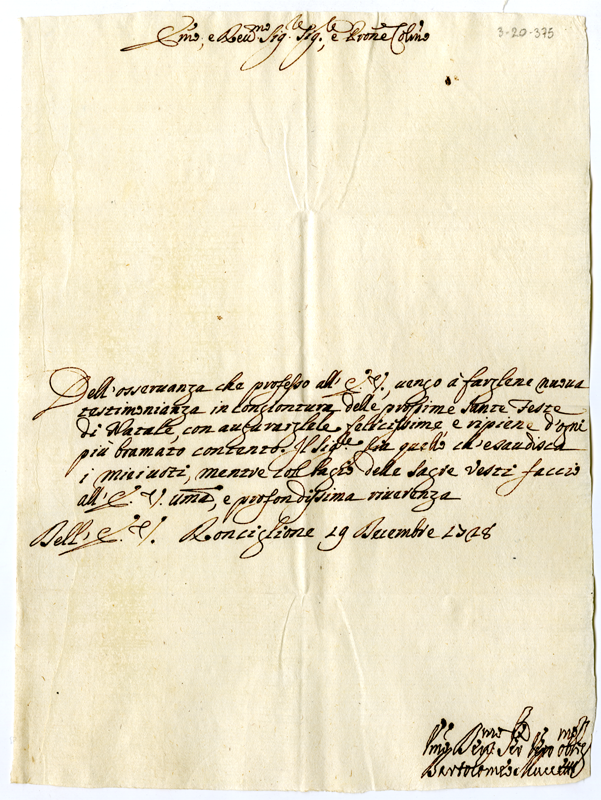 Emo, e Revmo Sigr Sigr, e Prone Colmo
3-20-375
Dell'osseruanza che professo all'E. V., uengo à farglene nuoua
testimonianza in congiontura delle prossime sante Feste
di Natale, con augurarglele felicissime e ripiene d'ogni
più bramato contento. Il Sigre sia quello ch'esaudisca
i miei uoti, mentre col bacio delle sacre Vesti faccio
all'E. V. uma, e profondissima riuerenza
Dell'E. V. Ronciglione 19 Decembre 1728
Vmo Deuo Ser
Bartolomeo